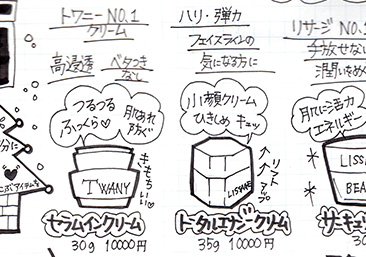 トワニーNO.1
クリーム
高浸透 ベタつき
なし
つるつる
ふっくら♡
肌あれ
防ぐ
きもちいい♡
TWANY
セラムインクリーム
30g 10000円
ハリ・弾力
フェイスラインの
気になる方に
小顔クリーム
ひきしめ キュッ
リフトアップ
LISSAGE
トータルエナジークリーム
35g 10000円
リサージ NO.1
手放せない
潤いをめぐ
肌に活力
エネルギー
LISS
BEA
サーキュ
30
分に
アイテムを